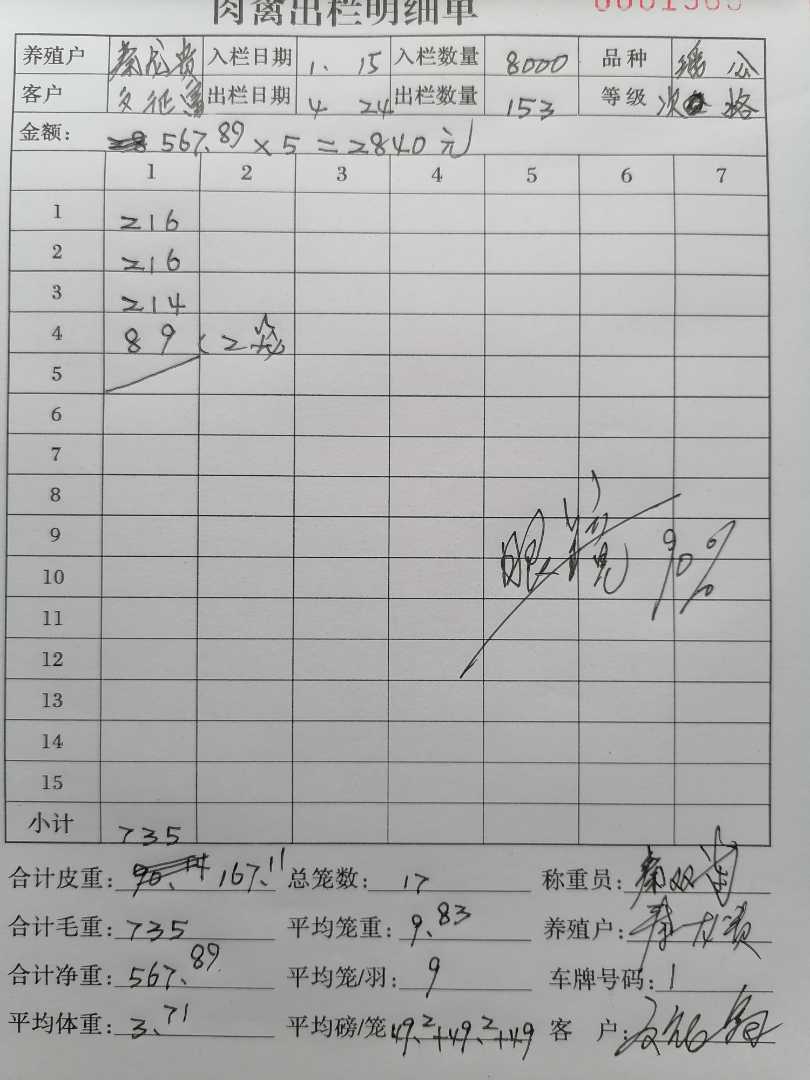 肉禽出栏明细单
养殖户 秦 入栏日期 1. 15 入栏数量 8000 品种 瑶公
客户 文征 出栏日期 4 24 出栏数量 153 等级 次 格
金额: 567.89 × 5 = 2840 元
1 2 3 4 5 6 7
1 216
2 216
3 214
4 89 (2
5
6
7
8
9 眼镜 90%
10
11
12
13
14
15
小计 735
合计皮重: 167.11 总笼数: 17 称重员: 秦双
合计毛重: 735 平均笼重: 9.83 养殖户: 秦
合计净重: 567.89 平均笼/羽: 9 车牌号码: 1
平均体重: 3.71 平均磅/笼 49.2+49.2+49 客 户: 文